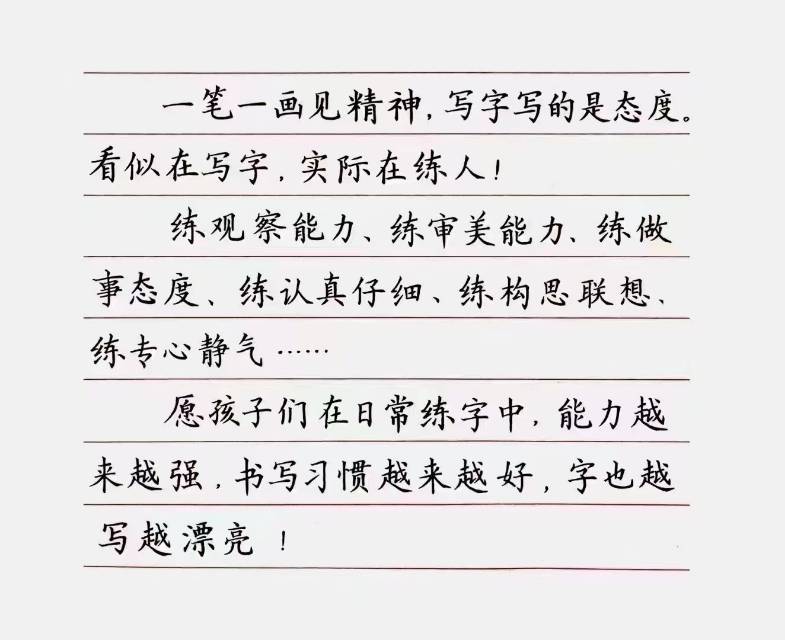 一笔一画见精神,写字写的是态度。
看似在写字,实际在练人!
练观察能力、练审美能力、练做
事态度、练认真仔细、练构思联想、
练专心静气……
愿孩子们在日常练字中,能力越
来越强,书写习惯越来越好,字也越
写越漂亮!